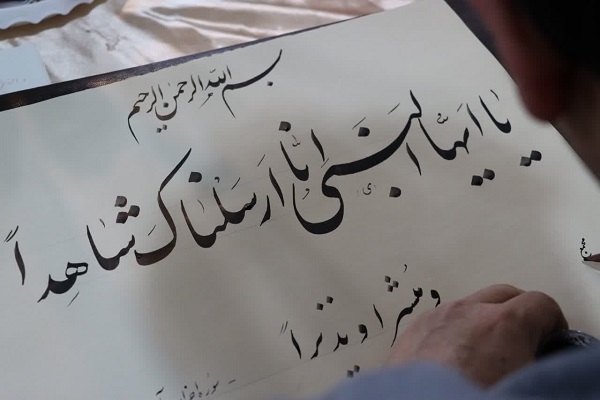 بسم الله الرحمن الرحیم
یا ایها النبی انا ارسلناک شاهداً
و مبشراً و نذیراً